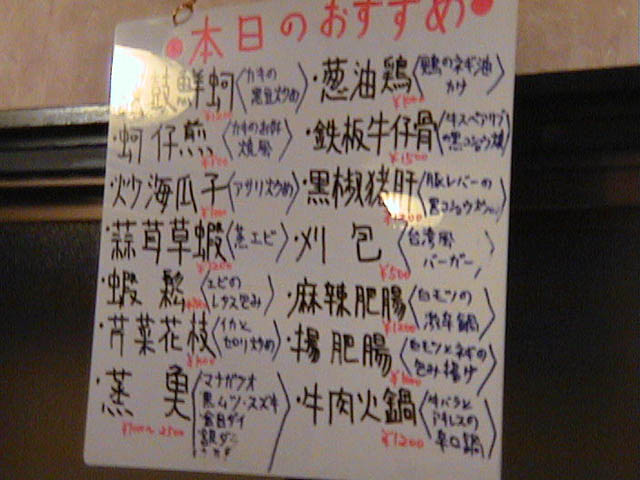 本日のおすすめ
鼓鮮蚵 〈カキの黒豆炒め〉
蚵仔煎 〈カキのお好焼風〉
炒海瓜子 〈アサリ炒め〉
蒜茸草蝦 〈蒸エビ〉
¥1200
蝦鬆 〈エビのレタス包み〉
芹菜花枝 〈イカとセロリ炒め〉
蒸魚 〈マナガツオ
黒ムツ・スズキ
金目ダイ
銀ダラ
¥1200~2500
・葱油鶏 〈鶏のネギ油かけ〉
・鉄板牛仔骨 〈牛スペアリブの黒コショウ焼〉
¥1500
・黒椒猪肝 〈豚レバーの黒コショウ炒め〉
¥1200
・刈包 〈台湾風バーガー〉
¥500
・麻辣肥腸 〈白モツの激辛鍋〉
¥1200
・揚肥腸 〈白モツとネギの包み揚げ〉
・牛肉火鍋 〈牛バラとアキレスの辛口鍋〉
¥1200